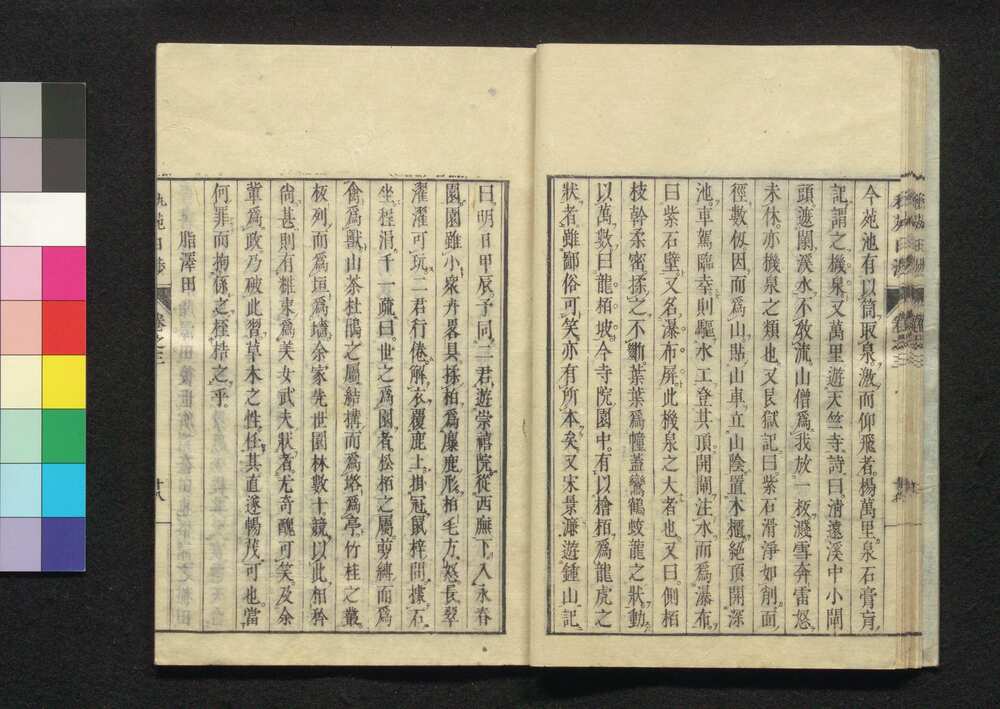 今苑池有以筒取泉激而仰飛者楊萬里泉石膏肓
記謂之機泉又萬里遊天竺寺詩曰清遠溪中小閘
頭遮闌溪水不敎流山僧爲我放一板濺雪奔雷怒
未休亦機泉之類也又艮獄記曰紫石滑淨如削面
徑數仭因而爲山貼山卓立山陰置木櫃絕頂開深
池車駕臨幸則驅水工登其頂開閘注水而爲瀑布
曰紫石壁又名瀑布屏此機泉之大者也又曰側栢
枝幹柔密揉之不斷葉葉爲幢蓋鸞鶴蛟龍之狀動
以萬數曰龍栢坡今寺院園中有以檜栢爲龍虎之
狀者雖鄙俗可笑亦有所本矣又宋景濂遊鍾山記
曰明日甲辰予同二君遊崇禧院從西廡下入永春
園園雖小衆卉畧具揉栢爲麋鹿形栢毛方怒長翠
濯濯可玩二君行倦解衣覆鹿上掛冠鼠梓間據石
坐桎涓千一疏曰世之爲園者松栢之屬剪縛而爲
禽爲獸山茶杜鵑之屬結搆而爲塔爲亭竹桂之叢
板列而爲垣爲墻余家先世園林數十競以此相矜
尙甚則有粧束爲美女武夫狀者尤奇醜可笑及余
輩爲政乃破此習草木之性任其直遂暢茂可也當
何罪而拘係之桎梏之乎
脂澤田
卷之三
十八